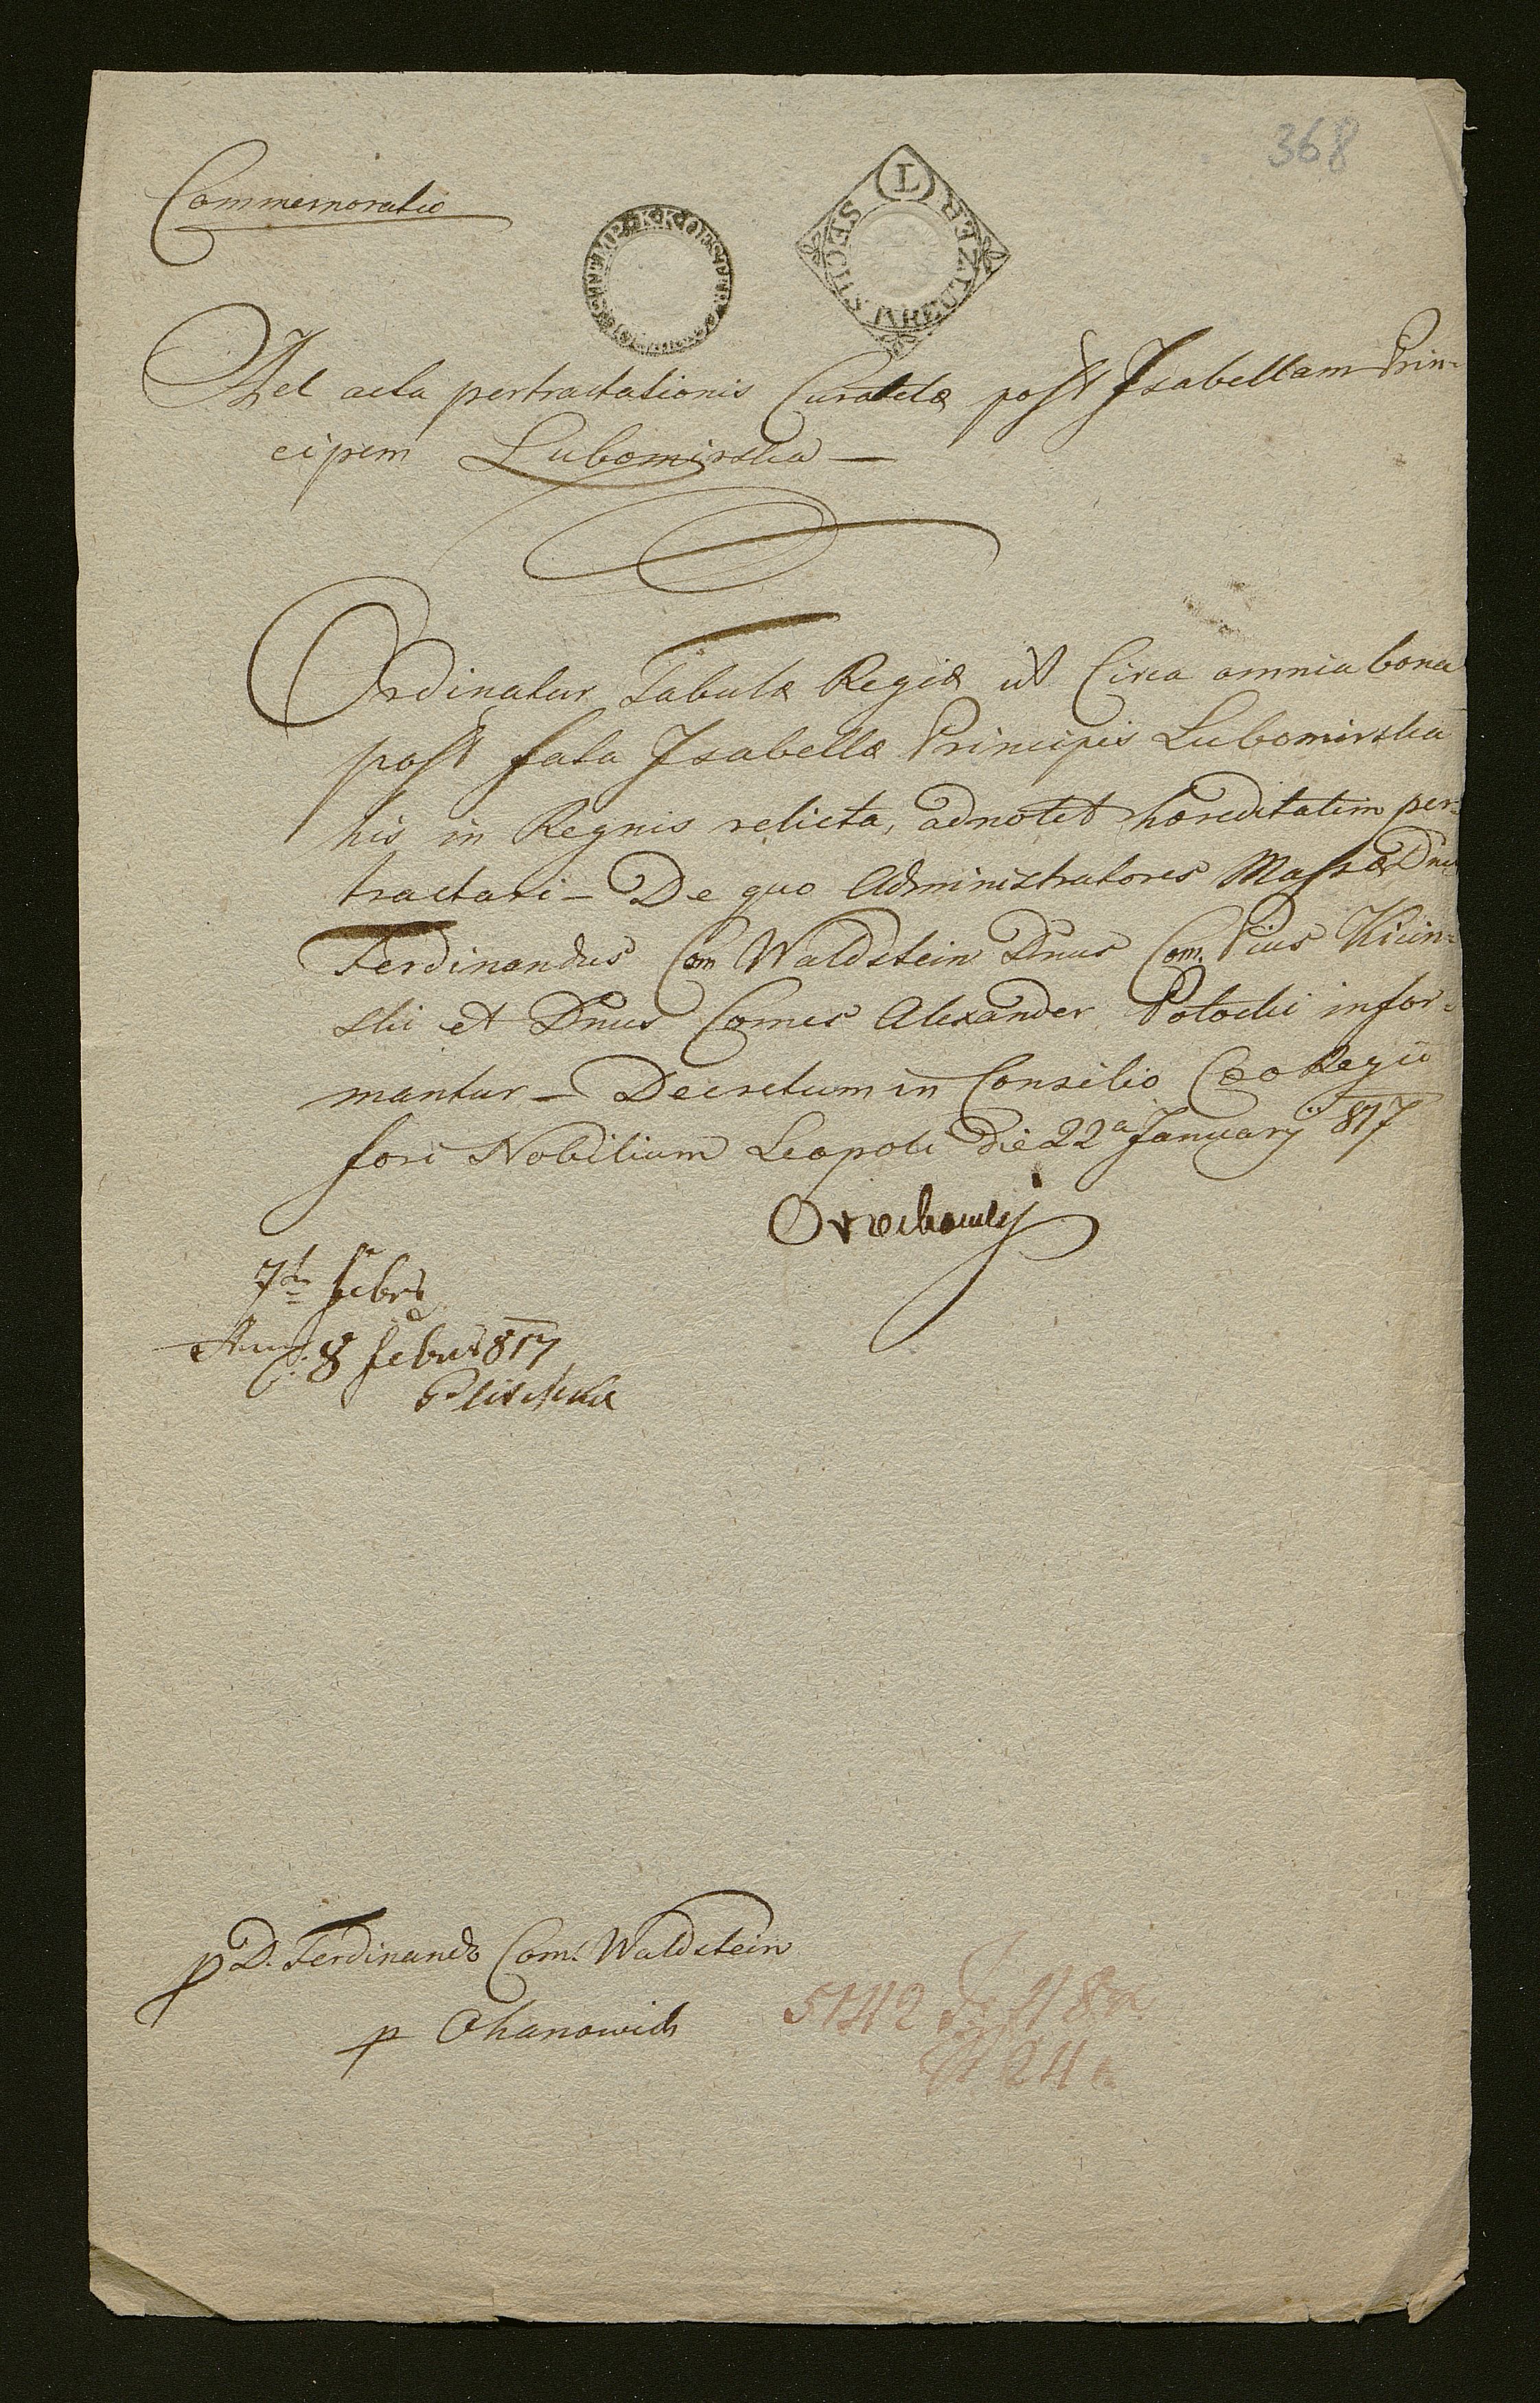 368
Commemoratio
STEMP. K.K. OESTER
SECHS KREUZER
Ad acta pertractationis Curatelæ post Isabellam Prin-
cipem Lubomirska —
Ordinatur Tabulæ Regiæ ut Circa omnia bona
post fata Isabellæ Principis Lubomirska
his in Regnis relicta, adnotet hæreditatem per-
tractari — De quo Administratores Massæ Dnus
Ferdinandus Com Waldstein Dnus Com. Pius Kicin-
ski et Dnus Comes Alexander Potocki infor-
mantur — Decretum in Consilio Cæo Regii
fori Nobilium Leopoli die 22a Januarÿ 817
7t Febr
8 Febr 817
Plischka
p D. Ferdinando Com. Waldstein
p Ohanowich
5142
24